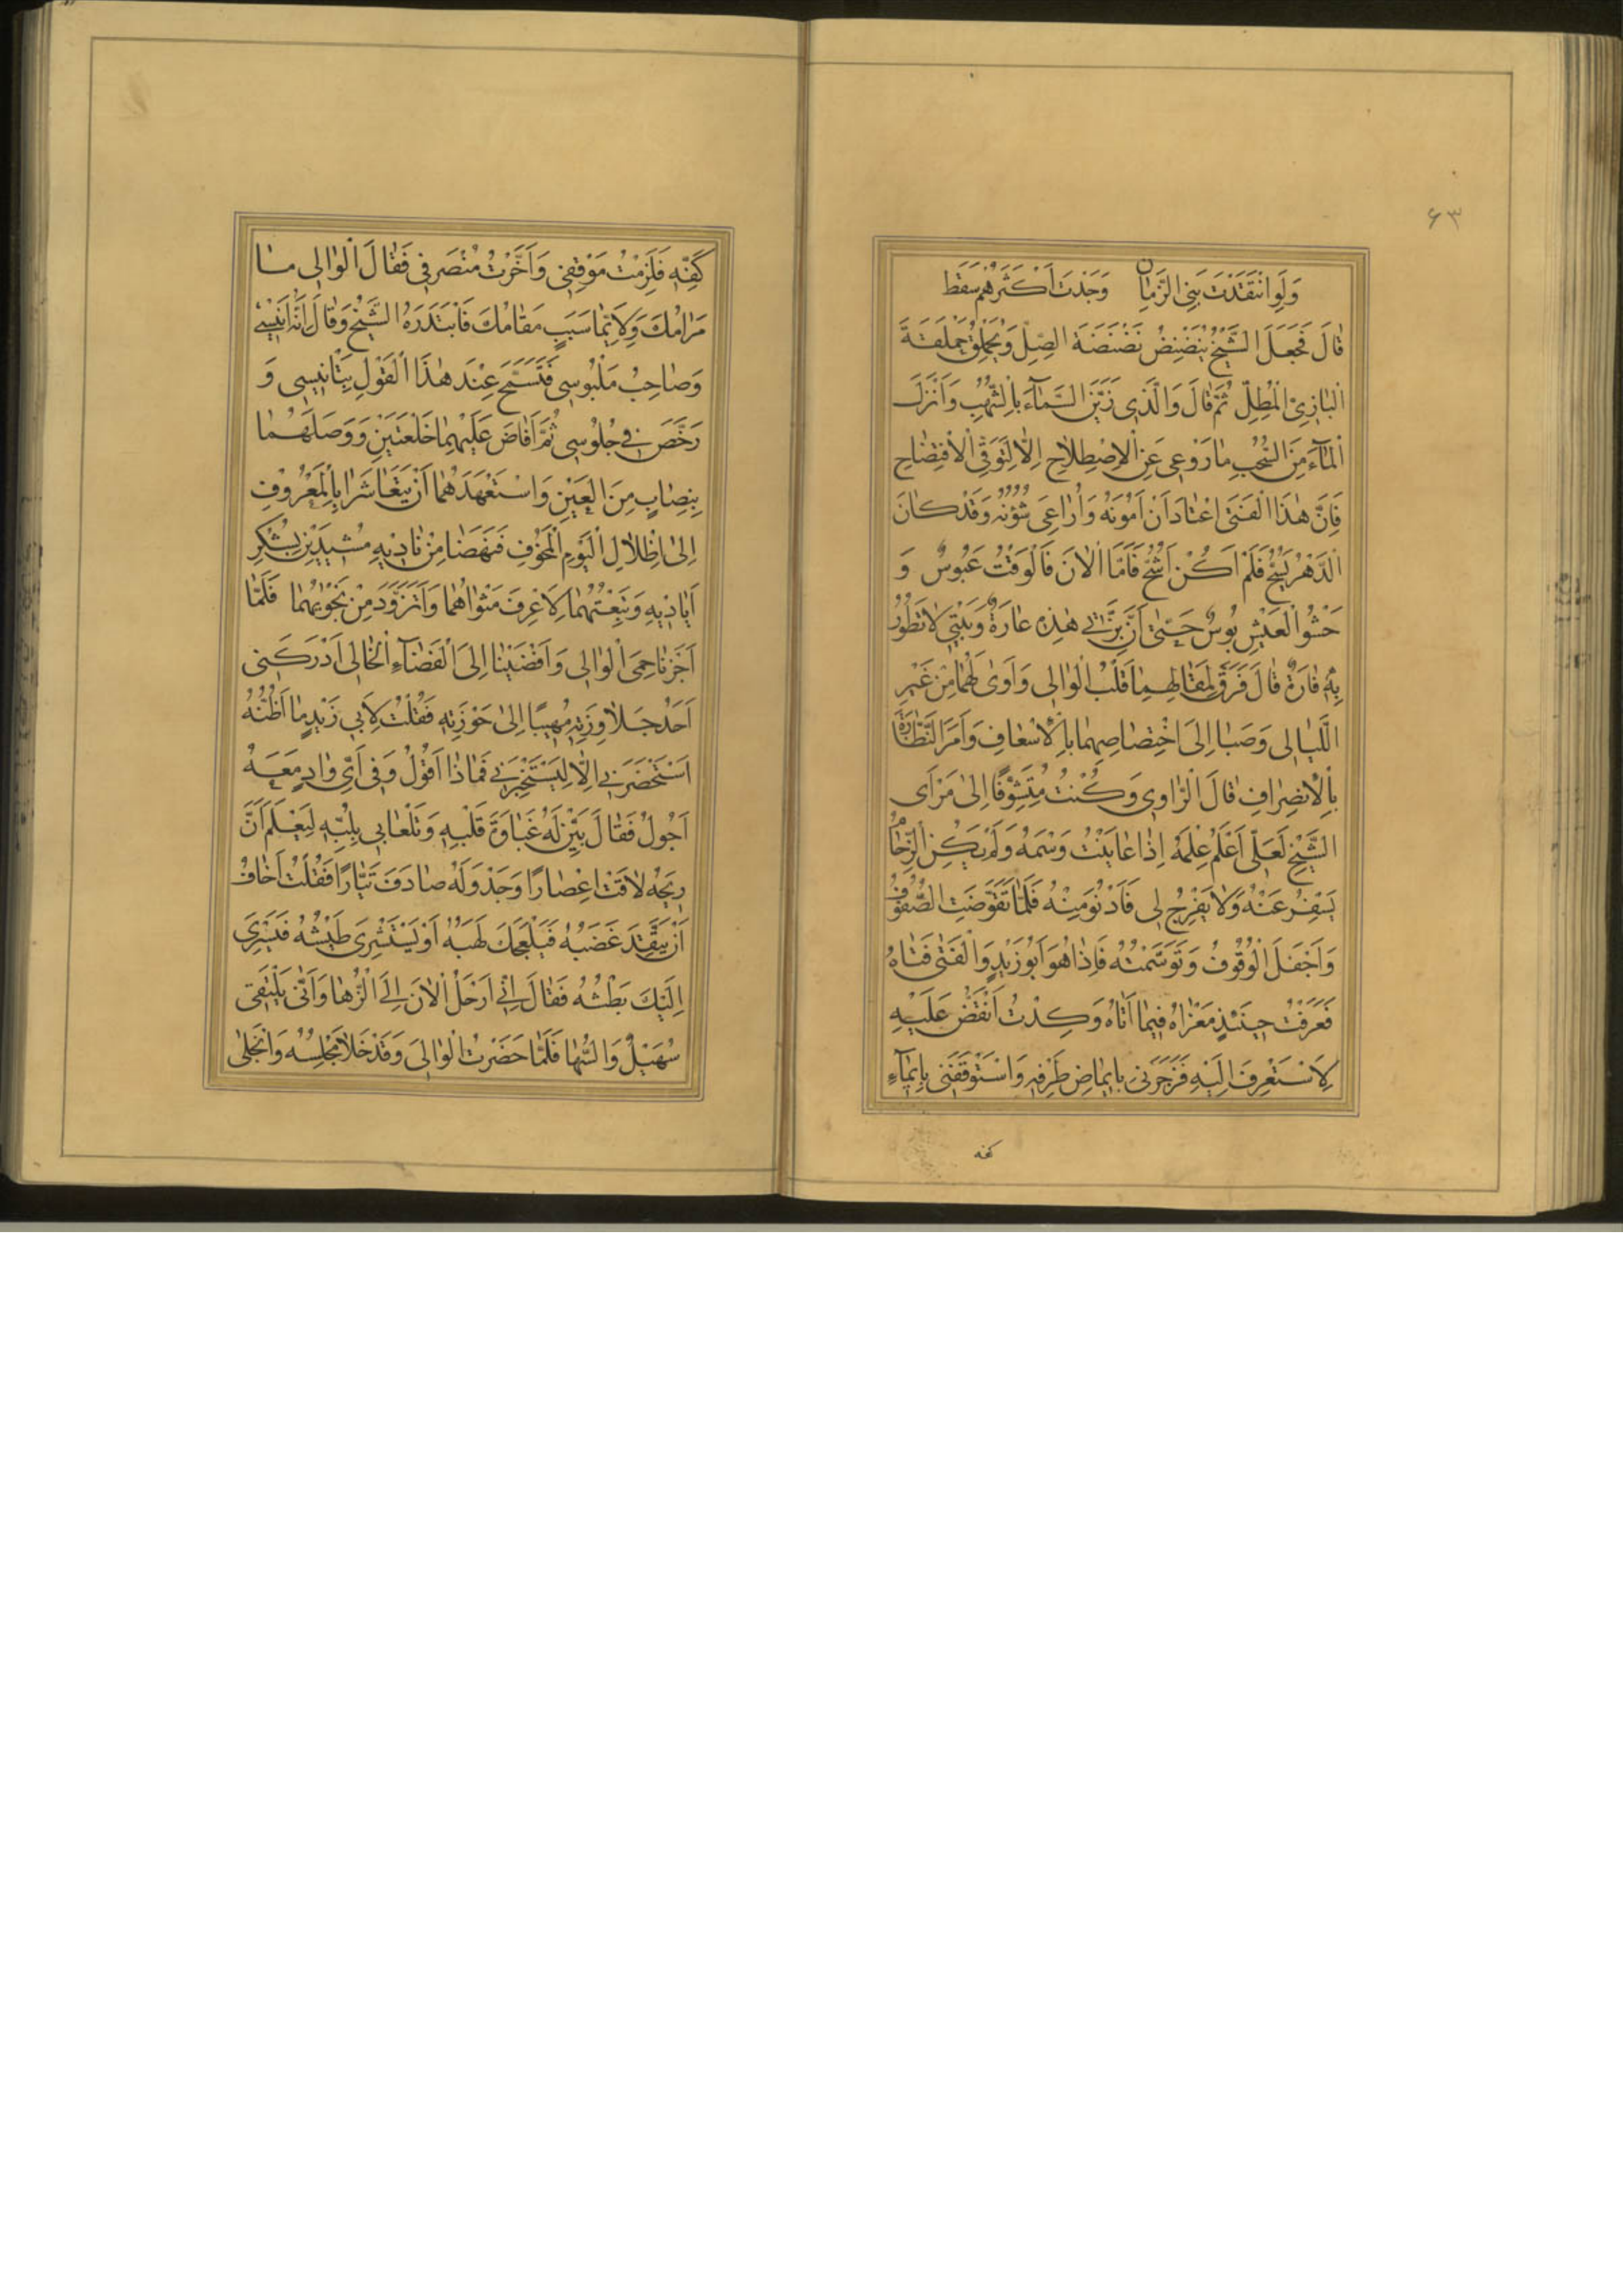 ۶۳
وَلَوِ انْتَقَدْتَ بَنِي الزَّمَانِ وَجَدْتَ أَكْثَرَهُمْ سَقَطَ
قَالَ فَجَعَلَ الشَّيْخُ يُنَضْنِضُ نَضْنَضَةَ الصِّلِّ وَيُحَمْلِقُ حَمْلَقَةَ
الْبَازِيِّ الْمُطِلِّ ثُمَّ قَالَ وَالَّذِي زَيَّنَ السَّمَآءَ بِالشُّهُبِ وَأَنْزَلَ
الْمَآءَ مِنَ السُّحُبِ مَا رَوْغِي عَنِ الْاِصْطِلَاحِ اِلَّا لِتَوَقِّي الْاِفْتِضَاحِ
فَاِنَّ هٰذَا الْفَتَى اعْتَادَ اَنْ اَمُونَهُ وَاُرَاعِيَ شُؤُنَهُ وَقَدْ كَانَ
الدَّهْرُ يَسُحُّ فَلَمْ اَكُنْ اَشُحُّ فَاَمَّا الْاٰنَ فَالْوَقْتُ عَبُوسٌ وَ
حَشْوُ الْعَيْشِ بُوسٌ حَتّٰى اَنَّ بِزَّتِي هٰذِهِ عَارَةٌ وَبَيْتِي لَا تَطُورُ
بِهِ فَارَةٌ قَالَ فَرَقَّ لِمَقَالِهِمَا قَلْبُ الْوَالِي وَاَوٰى لَهُمَا مِنْ غِيَرِ
اللَّيَالِي وَصَبَا اِلَى اخْتِصَاصِهِمَا بِالْاِسْعَافِ وَاَمَرَ النَّظَّارَةَ
بِالْاِنْصِرَافِ قَالَ الرَّاوِي وَكُنْتُ مُتَشَوِّفًا اِلٰى مَرْأٰى
الشَّيْخِ لَعَلِّي اَعْلَمُ عِلْمَهُ اِذَا عَايَنْتُ وَسْمَهُ وَلَمْ يَكُنِ الزِّحَامُ
يَسْفِرُ عَنْهُ وَلَا يَفْرِجُ لِي فَاَدْنُوَ مِنْهُ فَلَمَّا تَقَوَّضَتِ الصُّفُوفُ
وَاَجْفَلَ الْوُقُوفُ وَتَوَسَّمْتُهُ فَاِذَا هُوَ اَبُو زَيْدٍ وَالْفَتٰى فَتَاهُ
فَعَرَفْتُ حِينَئِذٍ مَغْزَاهُ فِيمَا اَتَاهُ وَكِدْتُ اَنْقَضُّ عَلَيْهِ
لِاَسْتَعْرِفَ اِلَيْهِ فَزَجَرَنِي بِاِيمَاضِ طَرْفِهِ وَاسْتَوْقَفَنِي بِاِيمَآءِ
كفه
كَفِّهِ فَلَزِمْتُ مَوْقِفِي وَاَخَّرْتُ مُنْصَرَفِي فَقَالَ الْوَالِي مَا
مَرَامُكَ وَلِاَيِّمَا سَبَبٍ مَقَامُكَ فَابْتَدَرَهُ الشَّيْخُ وَقَالَ اِنَّهُ اَنِيسِي
وَصَاحِبُ مَلْبُوسِي فَتَسَمَّحَ عِنْدَ هٰذَا الْقَوْلِ بِتَانِيسِي وَ
رَخَّصَ فِي جُلُوسِي ثُمَّ اَفَاضَ عَلَيْهِمَا خِلْعَتَيْنِ وَوَصَلَهُمَا
بِنِصَابٍ مِنَ الْعَيْنِ وَاسْتَعْهَدَهُمَا اَنْ يَتَعَاشَرَا بِالْمَعْرُوفِ
اِلٰى اِظْلَالِ الْيَوْمِ الْمَخُوفِ فَنَهَضَا مِنْ نَادِيهِ مُشِيدَيْنِ بِشُكْرِ
اَيَادِيهِ وَتَبِعْتُهُمَا لِاَعْرِفَ مَثْوَاهُمَا وَاَتَزَوَّدَ مِنْ نَجْوَيهُمَا فَلَمَّا
اَجَزْنَا حِمَى الْوَالِي وَاَفْضَيْنَا اِلَى الْفَضَآءِ الْخَالِي اَدْرَكَنِي
اَحَدُ جَلَاوِزَتِهِ مُهِيبًا اِلٰى حَوْزَتِهِ فَقُلْتُ لِاَبِي زَيْدٍ مَا اَظُنُّهُ
اسْتَحْضَرَنِي اِلَّا لِيَسْتَخْبِرَنِي فَمَاذَا اَقُولُ وَفِي اَيِّ وَادٍ مَعَهُ
اَجُولُ فَقَالَ بَيِّنْ لَهُ غَبَاوَةَ قَلْبِهِ وَتَلْعَابِي بِلُبِّهِ لِيَعْلَمَ اَنَّ
رِيحَهُ لَاقَتْ اِعْصَارًا وَجَدْوَلَهُ صَادَفَ تَيَّارًا فَقُلْتُ اَخَافُ
اَنْ يَتَّقِدَ غَضَبُهُ فَيَلْفَحَكَ لَهَبُهُ اَوْ يَسْتَشْرِيَ طَيْشُهُ فَيَسْرِيَ
اِلَيْكَ بَطْشُهُ فَقَالَ اِنِّي اَرْحَلُ الْاٰنَ اِلَى الرُّهَا وَاَنّٰى يَلْتَقِي
سُهَيْلٌ وَالسُّهَا فَلَمَّا حَضَرْتُ الْوَالِيَ وَقَدْ خَلَا مَجْلِسُهُ وَانْجَلٰى